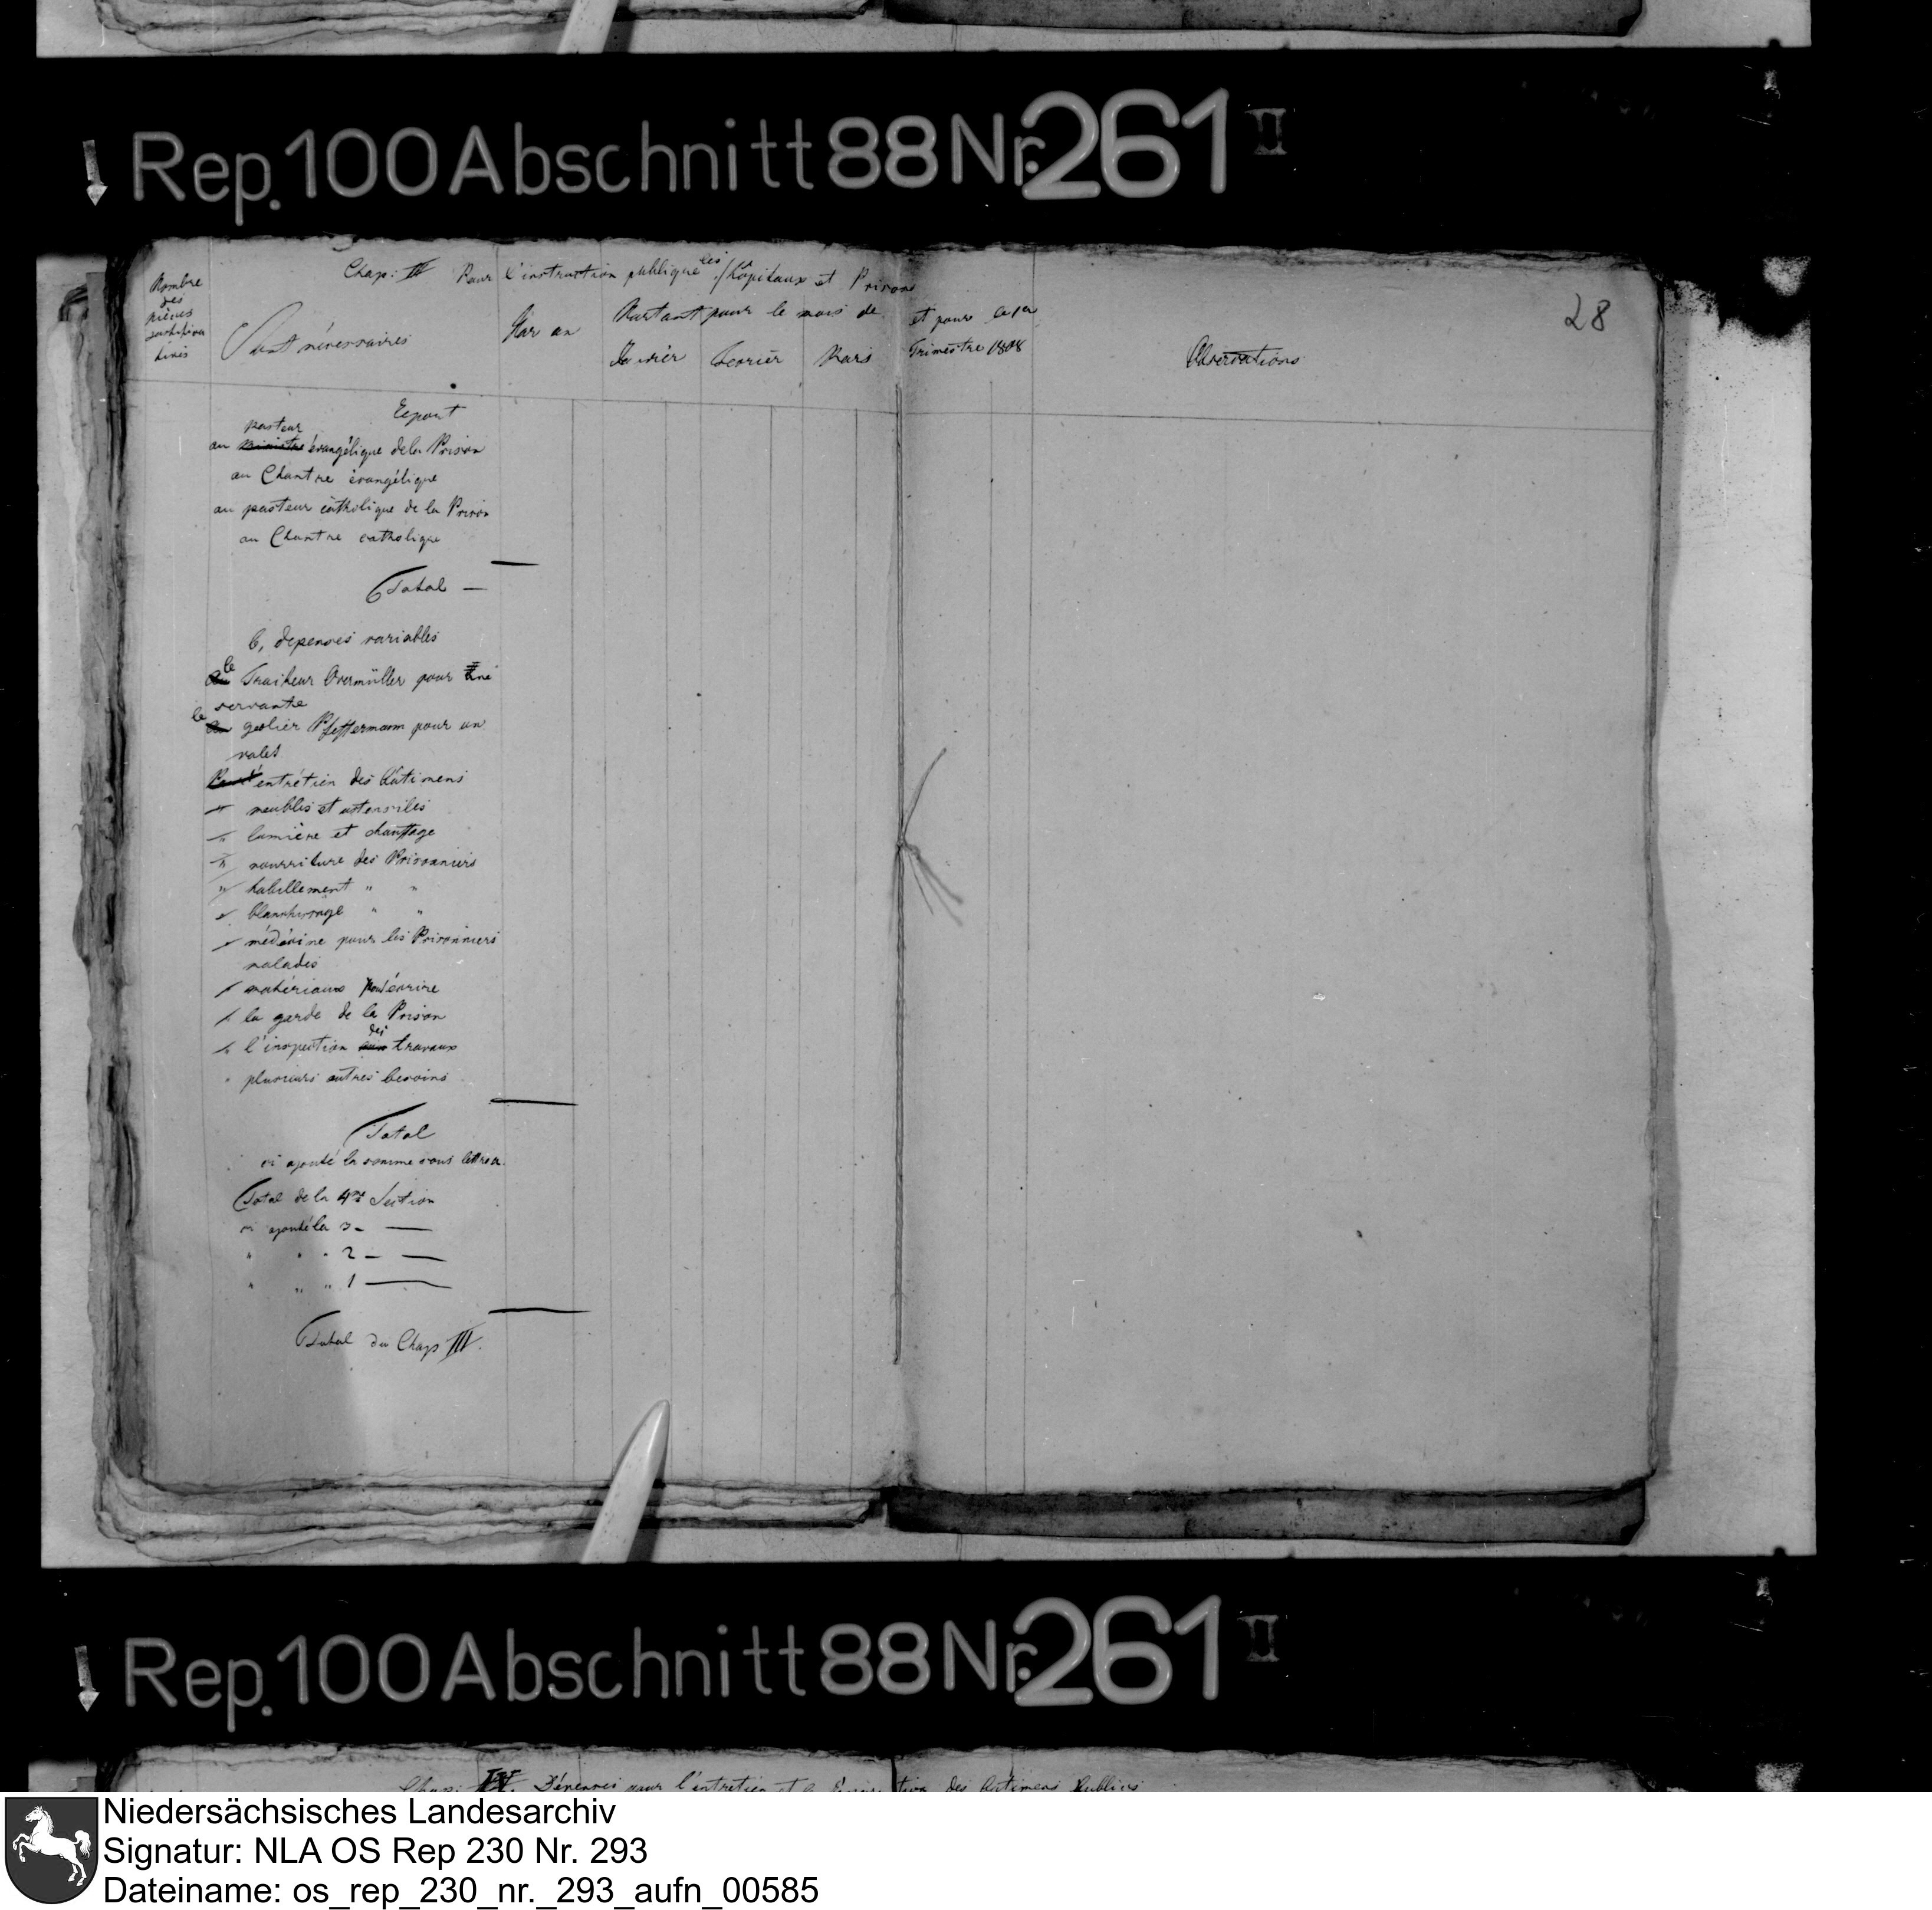 Rep. 100 Abschnitt 88 Nr. 261 II
Chap: III Pour l'instruction publique les hôpitaux et Prisons
28
Nombre
des
pièces
justifica
tives
Sont nécessaires
Par an
Partant pour le mois de
et pour le 1er
Janvier
Fevrier
Mars
Trimestre 1808
Observations
Report
pasteur
au ministre évangélique de la Prison
au Chantre évangélique
au pasteur catholique de la Prison
au Chantre catholique
Total —
b, depenses variables
le
au Traiteur Overmüller pour une
servante
le
au geolier Pfeffermann pour un
valet
Pour l'entrétien des bâtimens
" meubles et ustensiles
" lumière et chauffage
" nourriture des Prisonniers
" habillement " "
" blanchissage " "
" médécine pour les Prisonniers
malades
" matériaux pour écrire
" la garde de la Prison
des
" l'inspection aux travaux
" plusieurs autres besoins
Total
si ajouté la somme sous lettre a.
Total de la 4me Section
si ajouté la 3 — —
" " " 2 — —
" " " 1 —
Total du Chap III.
Rep. 100 Abschnitt 88 Nr. 261 II
Chap: IV. Dépenses pour l'entretien et la des bâtimens publics
Niedersächsisches Landesarchiv
Signatur: NLA OS Rep 230 Nr. 293
Dateiname: os_rep_230_nr._293_aufn_00585